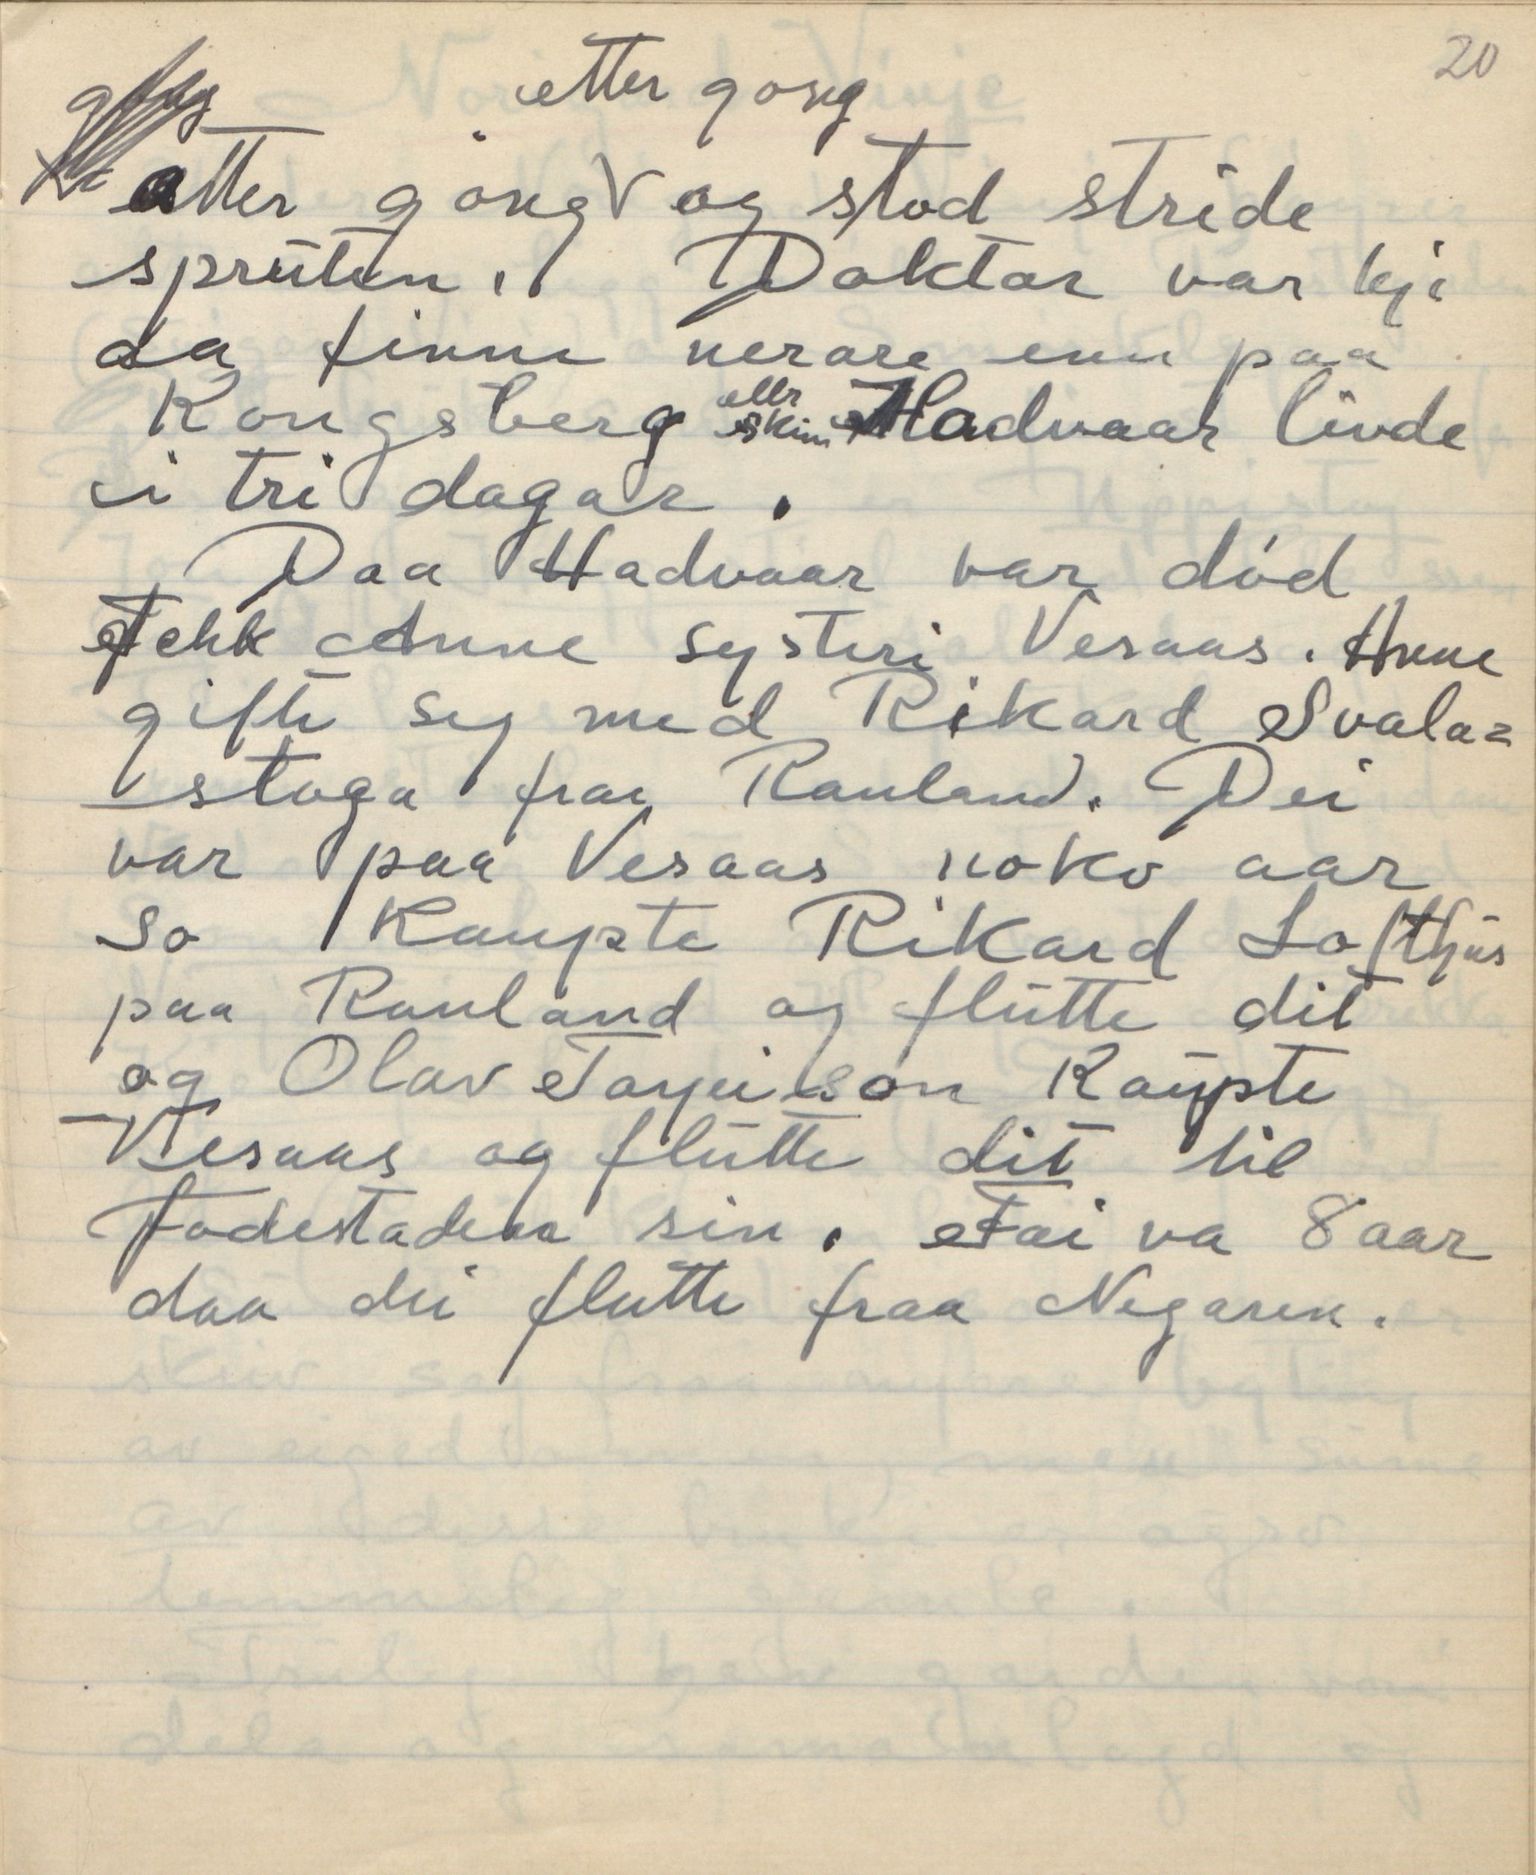 20
etter gong
etter gong og stod stride
sprüten. Doktar var kji
da finne nerare enn paa
Kongsberg ellr Skien Hadvaar livde
i tri dagar.
Daa Hadvaar var död
fekk Anne systeri Vesaas. Hune
gifte seg med Rikard Svala=
stoga fraa Rauland. Dei
var paa Vesaas noko aar
so Kaupte Rikard Lofthüs
paa Rauland og flütte dit
og Olav Tarjeison Kaüpte
Vesaas og flütte dit til
Fødestaden sin. Fai va 8 aar
daa dei flutte fraa Negaren.